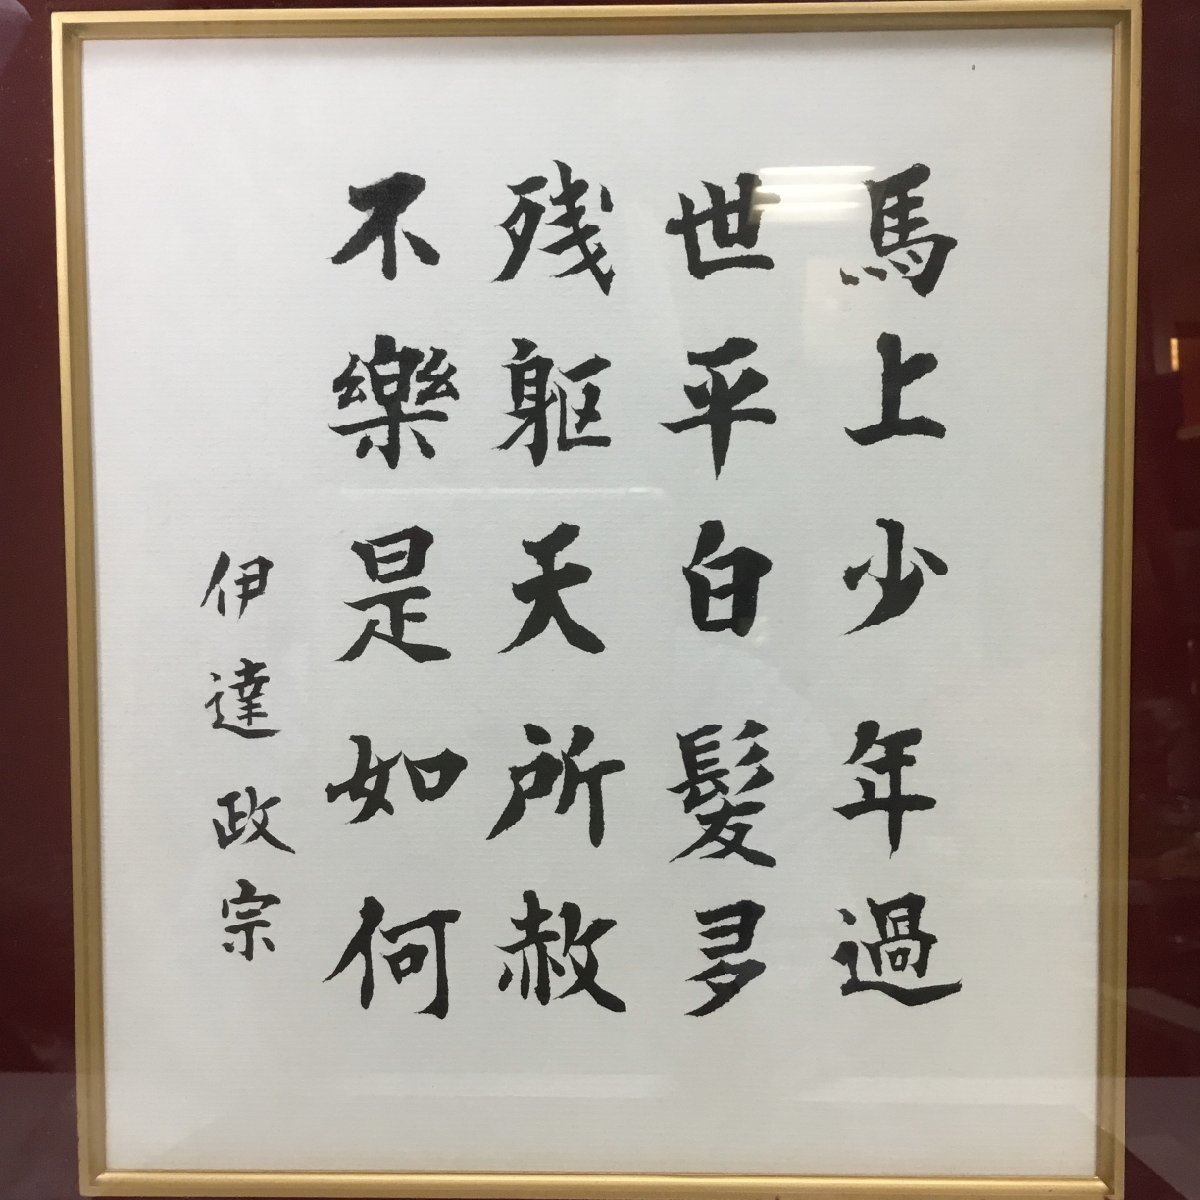 馬上少年過
世平白髪多
残躯天所赦
不樂是如何
伊達政宗